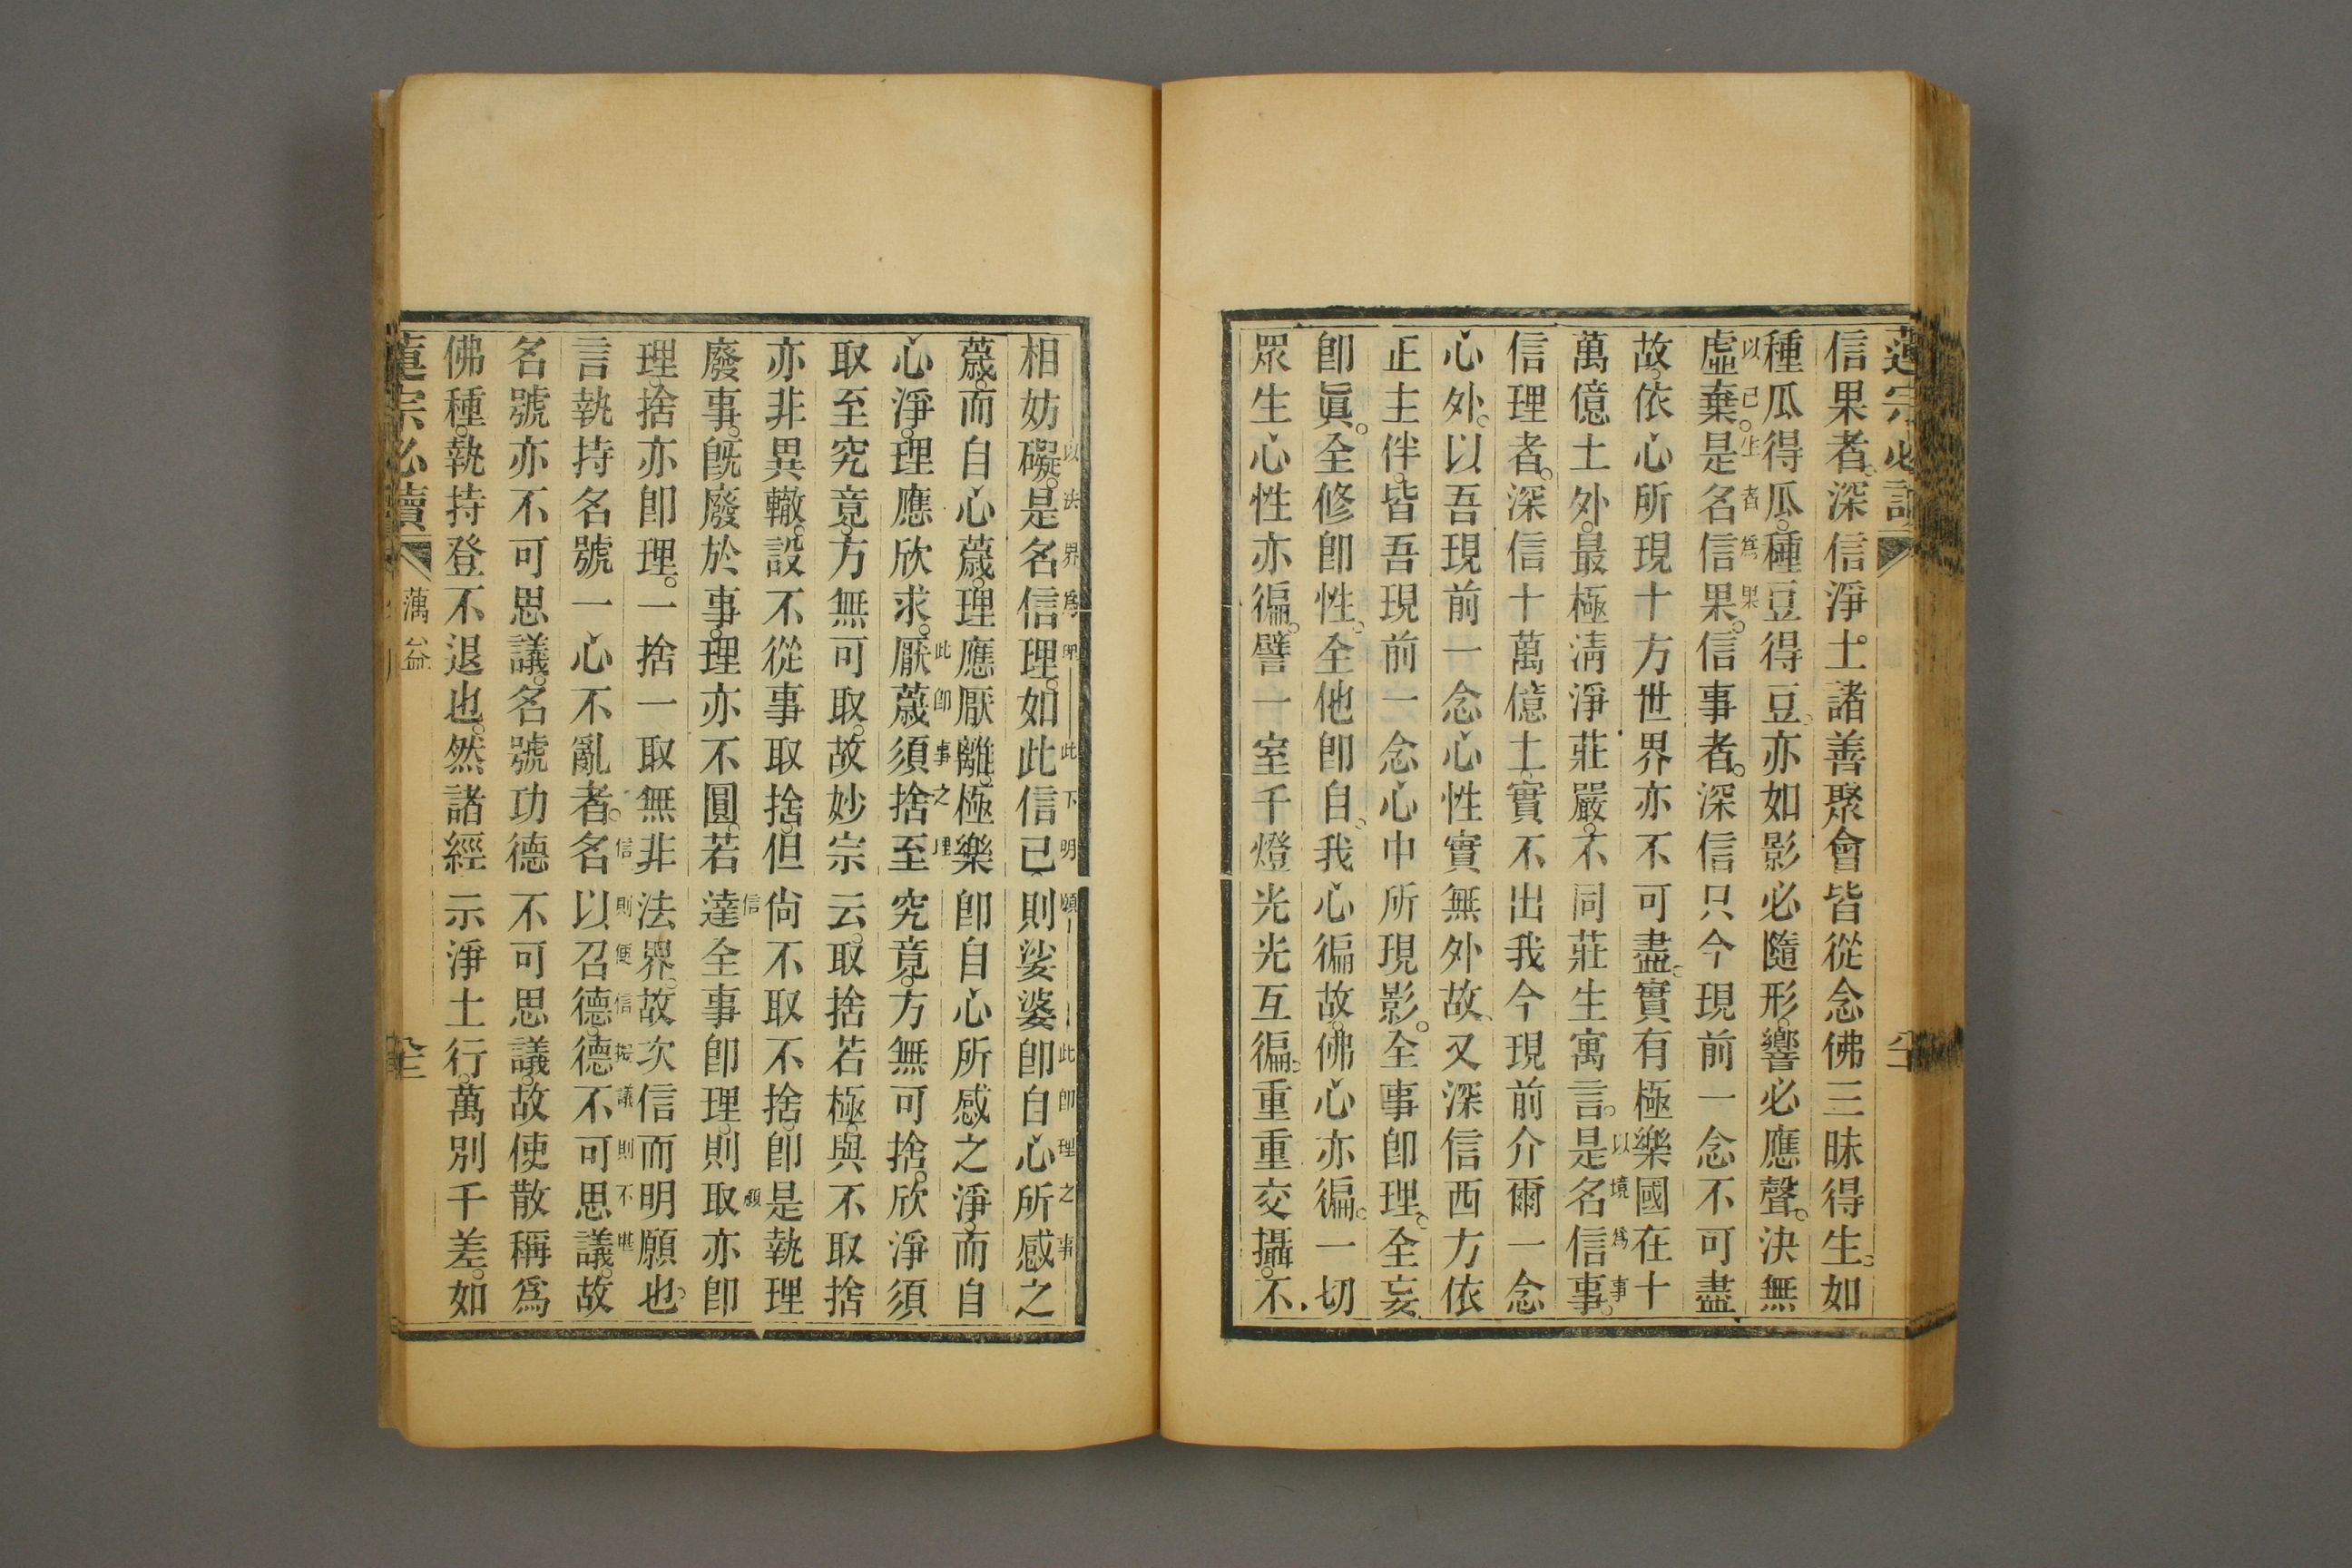 信果者。深信淨土。諸善聚會。皆從念佛三昧得生。如
種瓜得瓜。種豆得豆。亦如影必隨形。響必應聲。決無
以己生者爲果
虛棄。是名信果。信事者。深信只今現前一念不可盡
故。依心所現十方世界亦不可盡。實有極樂國在十
萬億土外。最極淸淨莊嚴。不同莊生寓言。是名信事。
以境爲事
信理者。深信十萬億土。實不出我今現前介爾一念
心外。以吾現前一念心性實無外故。又深信西方依
正主伴。皆吾現前一念心中所現影。全事卽理。全妄
卽眞。全修卽性。全他卽自。我心徧故。佛心亦徧。一切
眾生心性亦徧。譬一室千燈。光光互徧。重重交攝。不
相妨礙。是名信理。如此信已。則娑婆卽自心所感之
以法界爲
此下明願
此卽理之事
薉。而自心薉。理應厭離。極樂卽自心所感之淨。而自
心淨。理應欣求。厭薉須捨至究竟。方無可捨。欣淨須
此卽事之理
取至究竟。方無可取。故妙宗云。取捨若極。與不取捨
亦非異轍。設不從事取捨。但尙不取不捨。卽是執理
廢事。旣廢於事。理亦不圓。若達全事卽理。則取亦卽
信
願
理。捨亦卽理。一捨一取。無非法界。故次信而明願也。
言執持名號一心不亂者。名以召德。德不可思議。故
名號亦不可思議。名號功德不可思議。故使散稱爲
佛種。執持登不退也。然諸經示淨土行。萬別千差。如
蓮宗必讀
蕅益